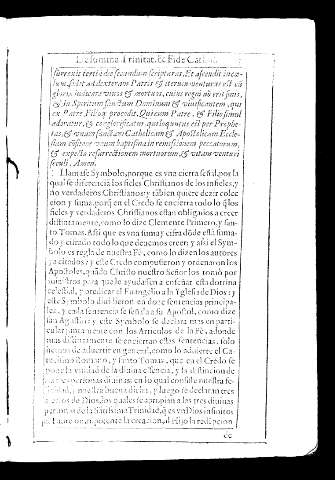 De summa Trinitat. & Fide Cathol.
surrexit tertia die secundum scripturas. Et ascendit in cæ-
lum, sedet ad dexteram Patris & iterum venturus est cū
gloria iudicare viuos & mortuos, cuius regni nō erit finis,
& In Spiritum sanctum Dominum & viuificantem, qui
ex Patre Filioq; procedit. Qui cum Patre, & Filio simul
adoratur, & conglorificatur, qui loquutus est per Prophe-
tas, & vnam sanctam Catholicam & Apostolicam Eccle-
siam cōfiteor vnum baptisma in remissionem peccatorum,
& expecto resurrectionem mortuorum, & vitam venturi
sęculi. Amen.
Llamase Symbolo, porque es vna cierta señal, por la
qual se diferencia los fieles Christianos de los infieles, y
no verdaderos Christianos: y tābien quiere dezir colec-
cion y suma, porq̄ en el Credo se encierra todo lo q̄ los
fieles y verdaderos Christianos estan obligados a creer
distintamente, como lo dize Clemente Primero, y san-
to Tomas. Assi que es vna suma y cifra dōde està suma-
do y cifrado todo lo que deuemos creer: y assi el Sym-
bolo es regla de nuestra Fè, como lo dizen los autores
ya citados: y este Credo compusieron y ordenaron los
Apostoles, quādo Christo nuestro Señor los tomò por
ministros para que le ayudassen a enseñar esta dotrina
celestial, y predicar el Euangelio a la Yglesia de Dios: y
este Symbolo diuidieron en doze sentencias principa-
les, y cada sentencia se señala a su Apostol, como dize
san Agustin: y este Symbolo se declara mas en parti-
cularjuntamente con los Articulos de la Fè, adonde
mas distintamente se encierran estas sentencias, solo
se ha de aduertir en general, como lo aduierte el Ca-
tecismo Romano, y santo Tomas, que en el Credo se
pone la vnidad de la diuina essencia, y la distincion de
las tres personas diuinas en lo qual consiste nuestra fe-
licidad, y nuestra buena dicha, y luego se declaran tres
efectos de Dios, los quales se apropian a las tres diuinas
personas de la santissima Trinidad, q̄ es vn Dios infinito
al Padre omnipotente la creacion, al Hijo la redēpcion
de